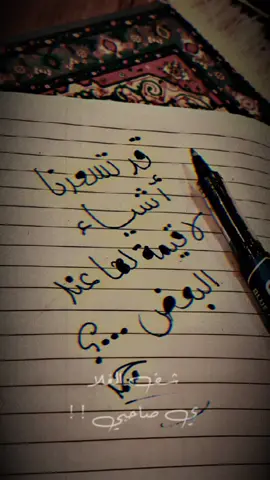 قد تسعدنا
أشياء
لا قيمة لها عند
البعض ....؟
صاحبي !!